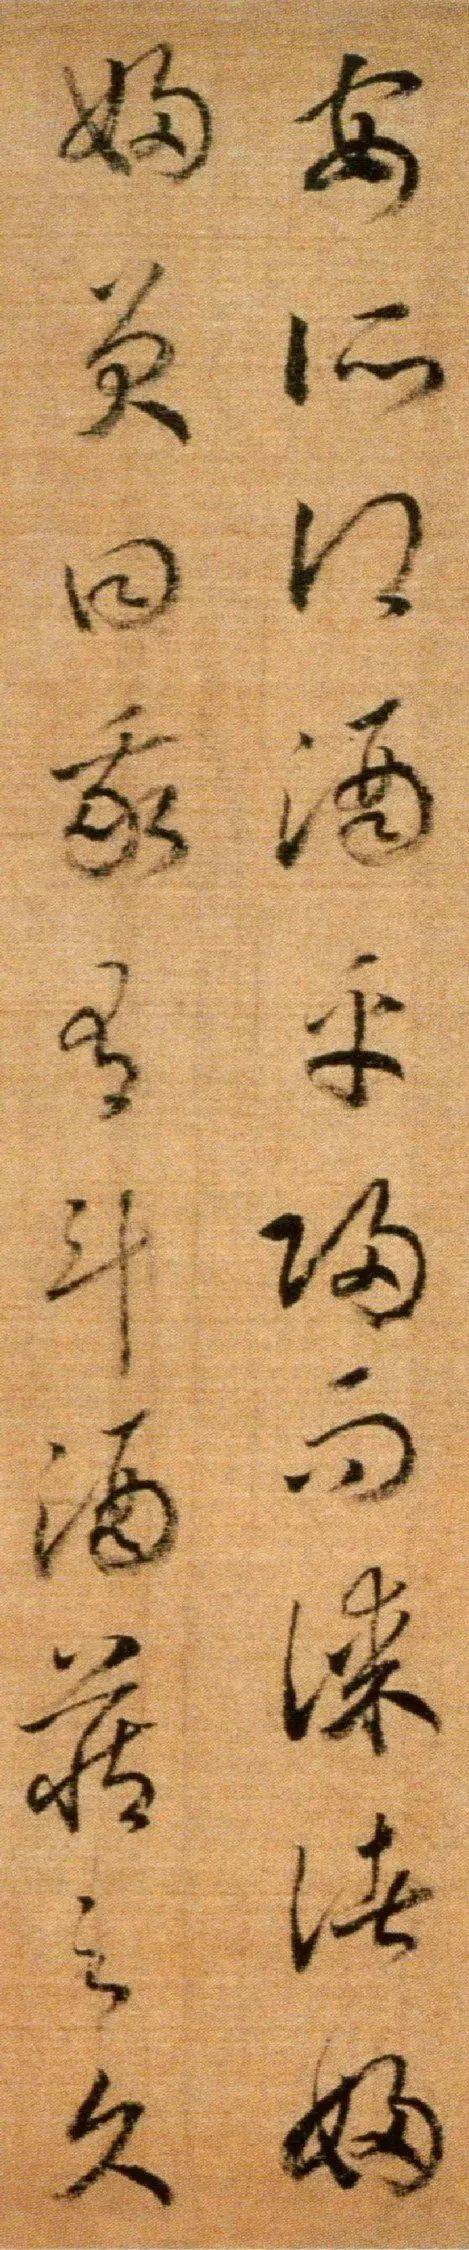 安所得酒乎歸而謀諸婦
婦曰我有斗酒藏之久